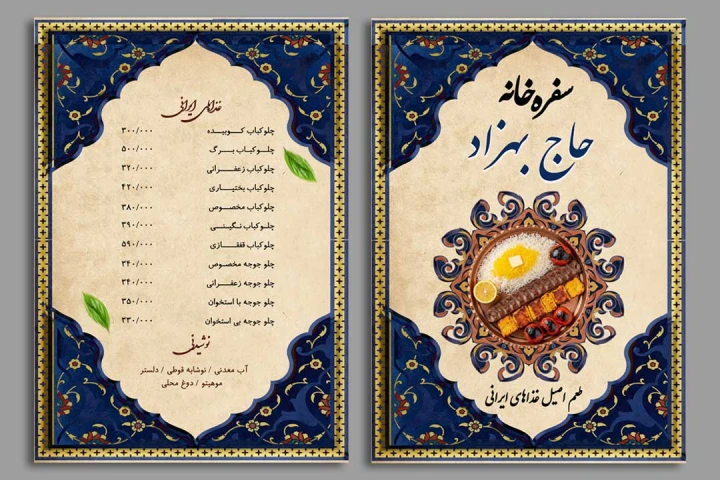 سفره‌خانه
حاج بهزاد
طعم اصیل غذاهای ایرانی
غذاهای ایرانی
چلوکباب کوبیده ۳۰۰/۰۰۰
چلوکباب برگ ۵۰۰/۰۰۰
چلوکباب زعفرانی ۳۲۰/۰۰۰
چلوکباب بختیاری ۴۲۰/۰۰۰
چلوکباب مخصوص ۳۸۰/۰۰۰
چلوکباب نگینی ۳۹۰/۰۰۰
چلوکباب قفقازی ۵۹۰/۰۰۰
چلو جوجه مخصوص ۳۴۰/۰۰۰
چلو جوجه زعفرانی ۳۴۰/۰۰۰
چلو جوجه با استخوان ۳۵۰/۰۰۰
چلو جوجه بی استخوان ۳۳۰/۰۰۰
نوشیدنی
آب معدنی / نوشابه قوطی / دلستر
موهیتو / دوغ محلی